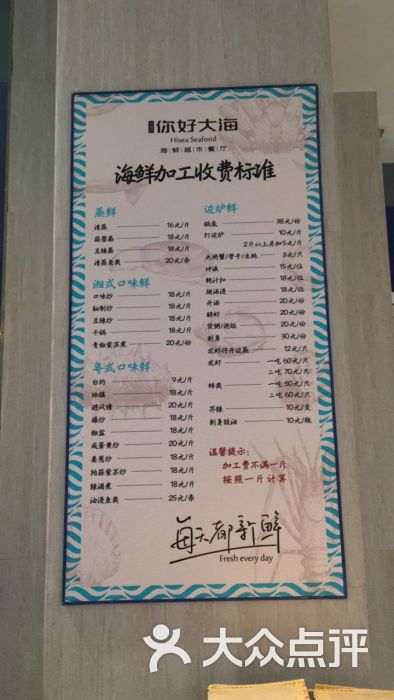 你好大海
Hisea Seafood
海鲜超市餐厅
海鲜加工收费标准
蒸鲜
清蒸 16元/斤
蒜蓉蒸 18元/斤
豆豉蒸 18元/斤
清蒸鱼类 20元/条
湘式口味鲜
口味炒 18元/斤
秘制炒 18元/斤
豆豉炒 18元/斤
干锅 18元/斤
青椒紫苏煮 20元/份
粤式口味鲜
白灼 9元/斤
冰镇 18元/斤
避风塘 20元/斤
爆炒 18元/斤
椒盐 18元/斤
咸蛋黄炒 20元/斤
姜葱炒 18元/斤
拍蒜紫苏炒 18元/斤
辣酒煮 18元/斤
油浸鱼类 25元/条
边炉鲜
锅底 38元/份
打边炉 10元/斤
2斤以上另加5元/斤
大闸蟹/带子/生蚝 3元/只
冲浪 15元/位
鲍汁扣 18元/位
翅汤浸 18元/位
开汤 20元/份
醉虾 20元/份
煲粥/泡饭 20元/份
刺身 30元/份
龙虾仔开边蒸 12元/只
龙虾 一吃 60元/只
二吃 70元/只
蚌类 一吃 50元/只
二吃 60元/只
芥辣 10元/支
刺身豉油 10元/瓶
温馨提示:
加工费不满一斤
按照一斤计算
每天都新鲜
Fresh every day
大众点评